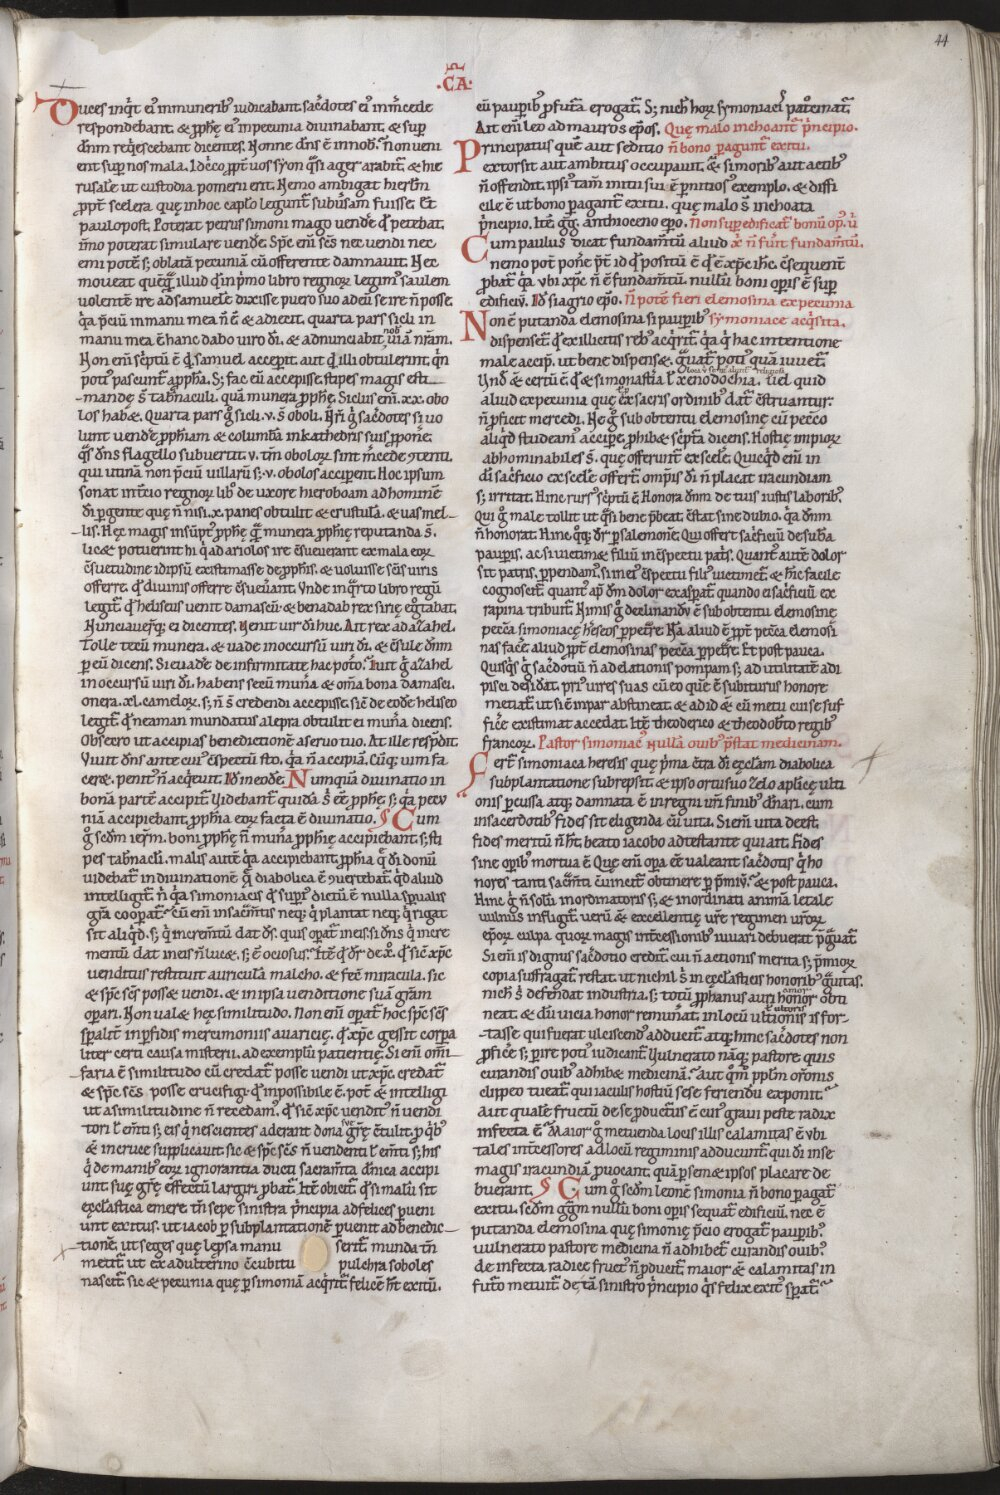 44
·CA·
Duces inq̇t ei᷒ inmunerib᷒ iudicabant. sac̄dotes ei᷒ inm̄cede
respondebant. & ꝓph̨e ei᷒ inpecunia diuinabant. & sup̄
dn̄m reqͥescebant dicentes. Nonne dn̄s ē innob᷒. n̄ non ueni
ent sup̄ nos mala. Idc̄co ꝓpt̄ uos syon q̄si ager arabit̄. & hie
rusalē ut custodia pomerii erit. Nemo ambigat hierlm̄
ꝓpt̄ scelera quę inhoc cap̄lo leguntˀ subūsam fuisse. Et
paulopost. Poterat petrus simoni mago uendē qd̄ petebat.
im̄o poterat simulare uendē. Sp̄c eni᷒ sc̄s nec uendi nec
emi potē. s; oblatā pecuniā cū offerente damnauit. Nec
moueat quēq̄ illud qd̄ inp̄mo libro regnoꝝ legim᷒ saulem
uolentē ire adsamuelē dixisse puero suo adeū se ire n̄ posse.
q̄a p̄ciū inmanu mea n̄ ē & adiecit. quarta pars sicli in
manu mea ē hanc dabo uiro dī. & adnunciabit nob̄ uiā nr̄am.
Non enī sc̄ptū ē qd̄ samuel accep̄it. aut qd̄ illi obtulerint. q̄n
poti᷒ pascunt̄ a ꝓph̄a. S; fac eū accepisse. stipes magis est-
mandę s̄ tab̄naculi. quā munera ꝓph̨ę. Siclus enī .xx. obo
los habē. Quarta pars g̊ sicli .v. s̄ oboli. Nr̄i g̊ sac̄dotes si uo
lunt uendē ꝓph̄iam & columbā inkathedris suis ꝓponē.
q̄s dn̄s flagello subuertit. v. tm̄ oboloꝝ sint m̄cede ꝯtenti.
qui utinā non p̄ciū uillarū s; .v. obolos accip̄ent. Hoc ipsum
sonat int̄cio regnoꝝ libro de uxore hieroboam adhominē
dī p̄gente que n̄ nisi .x. panes obtulit & crustulā. & uas mel-
lis. Hęc magis insūpt᷒ ꝓph̨ę q̄ munera ꝓph̨ię reputanda s̄.
lic& potuerint hi q̄ adariolos ire c̄sueuerant ex mala eoꝝ
c̄suetudine idipsū existimasse de ꝓph̄is. & uoluisse sc̄is uiris
offerre. qd̄ diuinis offerre c̄sueuant. Unde inq̄rto libro regū
legit̄ qd̄ heliseus uenit damascū. & benadab rex sirię eg̊tabat.
Nunciauer̄q; ei dicentes. Uenit uir dī huc. Ait rex ad azahel.
Tolle tecū munera. & uade inoccursū uiri dī. & c̄sule dn̄m
ꝑ eū dicens. Si euadē de infirmitate hac pot̊o. Iuit g̊ azahel
inoccursū uiri dī. habens secū mun̄a & om̄a bona damasci.
onera .xl. cameloꝝ. s; n̄ s̄ credendi accepisse. sic̄ de eodē heliseo
legit̄ qd̄ neaman mundatus alepra obtulit ei mun̄a dicens.
Obsecro ut accipias benedictionē aseruo tuo. At ille respd̄it.
Viuit dn̄s ante cui᷒ c̄spectū sto. q̄a n̄ accipiā. Cūq; uim fa
cere. penit᷒ n̄ acq̇euit. Id̄ incodē. Nunquā diuinatio in
bonā partē accipit̄. Uidebant̄ quidā s̄ eē ꝓph̨ę. s; q̄a pecu
niā accipiebant. ꝓph̄ia eoꝝ facta ē diuinatio. ¶ Cum
g̊ scdm̄ ierm̄. boni ꝓph̨ę n̄ mun̄a ꝓph̨ię accipiebant. s; sti
pes tabn̄acli. malis autē q̄a accipiebant. ꝓph̄ia q̄ dī donū
uidebat̄ in diuinationē q̄ diabolica ē ꝯuertebat̄. qd̄ aliud
intelligit̄. n̄ q̄a simoniacis qd̄ sup̄i᷒ dictū ē nulla sp̄ualis
gr̄a coop̄at̄. Cū enī insac̄m̄tis neq; q̄ plantat neq; q̄ rigat
sit aliqd̄. s; q̄ increm̄tū dat ds̄. quis op̄at̄ ineis. si dn̄s q̄ incre
mentū dat ineis n̄ luc&. s; ē ociosus. Itē qd̄ dr̄ de xp̊. qd̄ sic̄ xp̄c
uenditus restituit auriculā malcho. & fec̄ miracula. sic
& sp̄c sc̄s poss& uendi. & in ipsa uenditione suā gr̄am
op̄ari. Non ual& hęc similitudo. Non enī op̄at̄ hoc sp̄c sc̄s
sp̄alit̄ inp̄fidis mercimoniis auaricię. qd̄ xp̄c gessit corpa
liter certi causa misterii. adexemplū patientię. Si enī om̄i-
faria ē similitudo eū credat̄ posse uendi ut xp̄c. credat̄
& sp̄c sc̄s posse crucifigi. qd̄ impossibile ē. pot̄ & intelligi
ut asimilitudine n̄ recedam᷒. qd̄ sic̄ xp̄c uendit᷒ n̄ uendi
tori l̄ em̄ti s; eis q̄ nescientes aderant dona suę gr̄ę c̄tulit. ꝓ q̄b᷒
& incruce supplicauit. sic & sp̄c sc̄s n̄ uendenti l̄ em̄ti s; his
q̄ de manib᷒ eoꝝ ignorantia ducti sacram̄ta dn̄ica accipi
unt suę gr̄ę effectū largiri ꝓbat̄. Itē obicit̄. qd̄ si malū sit
ęcclastica emere. tn̄ sepe sinistra p̄ncipia adfelices ꝑueni
unt exitus. ut iacob ꝑ subplantationē ꝑuenit adbenedic-
tionē. ut seges quę lep̄sa manu serit̄ munda tn̄
metit̄. ut ex adulterino c̄cubitu pulchra soboles
nascit̄. sic & pecunia quę ꝑ simoniā acq̇rit̄. felicē h̄t exitū.
cū paup̄ib᷒ ꝓfut̄a erogat̄. S; nich̄ horꝝ symoniacis patrocinat̄.
Ait enī leo ad mauros ep̄os. Quę malo inchoant̄ p̄ncipio.
Principatus quē aut seditio n̄ bono ꝑagunt̄ exitu.
extorsit aut ambitus occupauit. & si morib᷒ aut actib᷒
n̄ offendit. ipsi᷒ tam̄ initii sui ē ꝑnitios᷒ exemplo. & diffi
cile ē ut bono ꝑagant̄ exitu. quę malo s̄ inchoata
p̄ncipio. Itē gg̊. anthioceno ep̄o. Non sup̄edificat̄ bonū op᷒. ū
Cum paulus dicat fundam̄tū aliud xp̄c n̄ fūit fundam̄tū.
nemo pot̄ ponē p̄t id qd̄ positū ē qd̄ ē xp̄c ihc̄. c̄sequent̄
ꝓbat̄ q̄a ubi xp̄c n̄ ē fundam̄tū. nullū boni op̄is ē sup̄
edificiū. Id̄ siagrio ep̄o. N̄ potē fieri elemosina ex pecunia
Non ē putanda elemosina si paup̄ib᷒ symoniace acq̇sita.
dispenset̄ qd̄ ex illicitis reb᷒ acq̇rit̄. q̄a q̄ hac intentione
male accip̄. ut bene dispens&. g̊uat̄ poti᷒ quā iuuet̄.
Und̄ & certū ē qd̄ & si monastia l̄ xenodochia. ūel quid
aliud ex pecunia quę ꝓ sacris ordinib᷒ dat̄ c̄struantur.
n̄ ꝓficit mercedi. Ne g̊ sub obtentu elemosinę cū pecc̄o
aliq̇d studeam᷒ accipē. ꝓhib& sc̄pt̄a dicens. Hostię impioꝝ
abhominabiles s̄. quę offerunt̄ ex scelē. Quicqd̄ enī in
dī sac̄ficio ex scelē offert̄. om̄ipt̄is dī n̄ placat iracundiam
s; irritat. Hinc rurs᷒ sc̄ptū ē Honora dn̄m de tuis iustis laborib᷒.
Qui g̊ male tollit ut q̄si bene p̄beat. c̄stat sine dubio. q̄a dn̄m
n̄ honorat. Hinc q̄q; dr̄ ꝑ salemonē. Qui offert sac̄ficiū de subā
paup̄is. ac si uictim& filiū inc̄spectu pat̄s. Quant᷒ autē dolor
sit patris. ꝑpendam᷒. si in ei᷒ c̄spectu fili᷒ uictimet̄. & hinc facile
cognoscit̄. quant᷒ ap̄ dm̄ dolor exaspat̄ quando ei sac̄ficiū ex
rapina tribuit̄. Nimis g̊ declinandū ē sub obtentu elemosinę
pecc̄a simoniacę h̄eseos ꝑpetr̄e. Nā aliud ē ꝓpt̄ pecc̄a elemosi
nas facē. aliud ꝓpt̄ elemosinas pecc̄a ꝑpetr̄e. Et post pauca.
Quisq̄s g̊ sac̄dotiū n̄ ad elationis pompam s; ad utilitatē adi
pisci desid̄at. pri᷒ uires suas cū eo que ē subiturus honore
metiat̄. ut si ē impar abstineat. & ad id & cū metu cui se suf
fic̄e existimat accedat. Itē theoderico & theodob̄to regib᷒
francoꝝ. Pastor simoniac᷒ nullā ouib᷒ p̄stat medicinam.
Fert̄ simoniaca heresis quę p̄ma c̄tra dī ęccl̄am diabolica
subplantatione subrepsit. & ipso ortu suo zelo aplicę ulti
onis ꝑcussa atq; damnata ē inregni ur̄i finib᷒ dn̄ari. cum
insacerdotib᷒ fides sit eligenda cū uita. Si enī uita deest.
fides meritū n̄ ht̄. beato iacobo adtestante qui ait. Fides
sine op̄ib᷒ mortua ē. Quę enī op̄a eē ualeant sac̄dotis q̄ ho
nores tanti sac̄m̄ti c̄uincit̄ obtinere ꝑ p̄miū. & post pauca.
Hinc g̊ n̄ solū inordinatoris s; & inordinati animā letale
uulnus infligit̄. uerū & excellentię ur̄e regimen ur̄oꝝ
ep̄oꝝ culpa. quoꝝ magis int̄cessionib᷒ iuuari debuerat p̄g̊uat̄.
Si enī is dign᷒ sac̄dotio credit̄. cui n̄ actionis merita s; p̄mioꝝ
copia suffragat̄. restat ut nichil s̄ in ęcclasticis honorib᷒ g̊uitas.
nich̄ s̄ defendat industria. s; totū ꝓphanus auri amor obti
neat. & dū uicia honor remun̄at. inlocū ultoris is for-
tasse qui fuerat ulciscend᷒ adducit̄. atq; hinc sac̄dotes non
ꝓficē s; ꝑire poti᷒ iudicant̄. Uulnerato nāq; pastore quis
curandis ouib᷒ adhib& medicinā. aut qm̄ pplm̄ or̄onis
clippeo tueat̄. qui iaculis hostiū sese feriendū exponit.
Aut qualē fructū de se ꝓduct̄us ē cui᷒ graui peste radix
infecta ē. Maior g̊ metuenda locis illis calamitas ē ubi
tales int̄cessores adlocū regiminis adducunt̄. qui dī in se
magis iracundiā ꝓuocant. quā ꝑ sem& ipsos placare de
buerant. ¶ Cum g̊ scdm̄ leonē simonia n̄ bono ꝑagat̄
exitu. scdm̄ gg̊m nullū boni op̄is sequat̄ edificiū. nec ē
putanda elemosina quę simonię p̄cio erogat̄ paup̄ib᷒.
uulnerato pastore medicina n̄ adhibet̄ curandis ouib᷒.
de infecta radice fruct᷒ n̄ ꝓducit̄. maior & calamitas in
fut᷒o metuit̄. de tā sinistro p̄ncipio q̄s felix exit᷒ sp̄at̄.